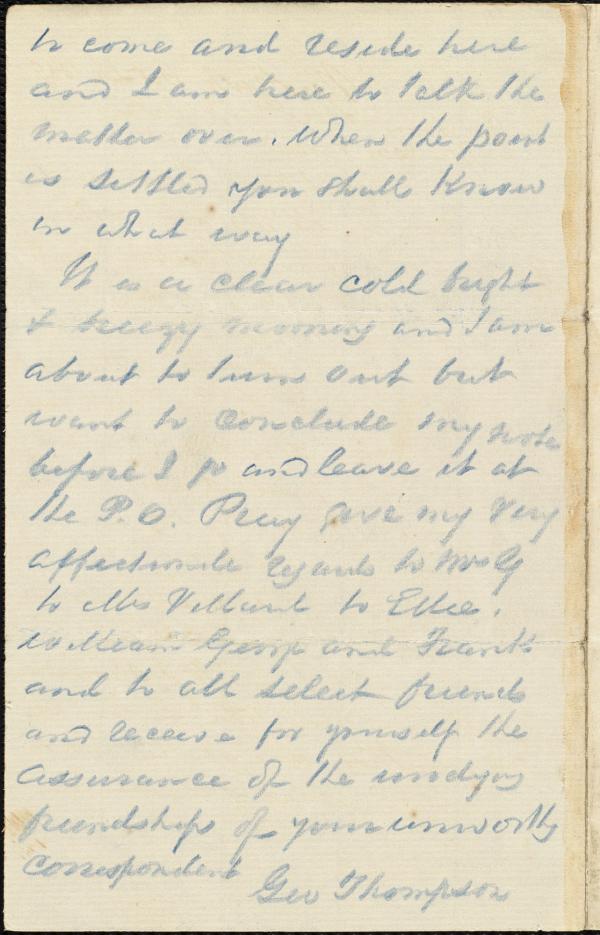 to come and reside here
and I am here to talk the
matter over. When the point
is settled you shall know
in what way
It is a clear cold bright
& breezy morning and I am
about to turn out but
want to conclude my note
before I go and leave it at
the P.O. Pray give my very
affectionate regards to Mrs G
to Mrs Villard to Ellie.
William George and Frank
and to all select friends
and receive for yourself the
assurance of the undying
friendship of your unworthy
correspondent
Geo Thompson